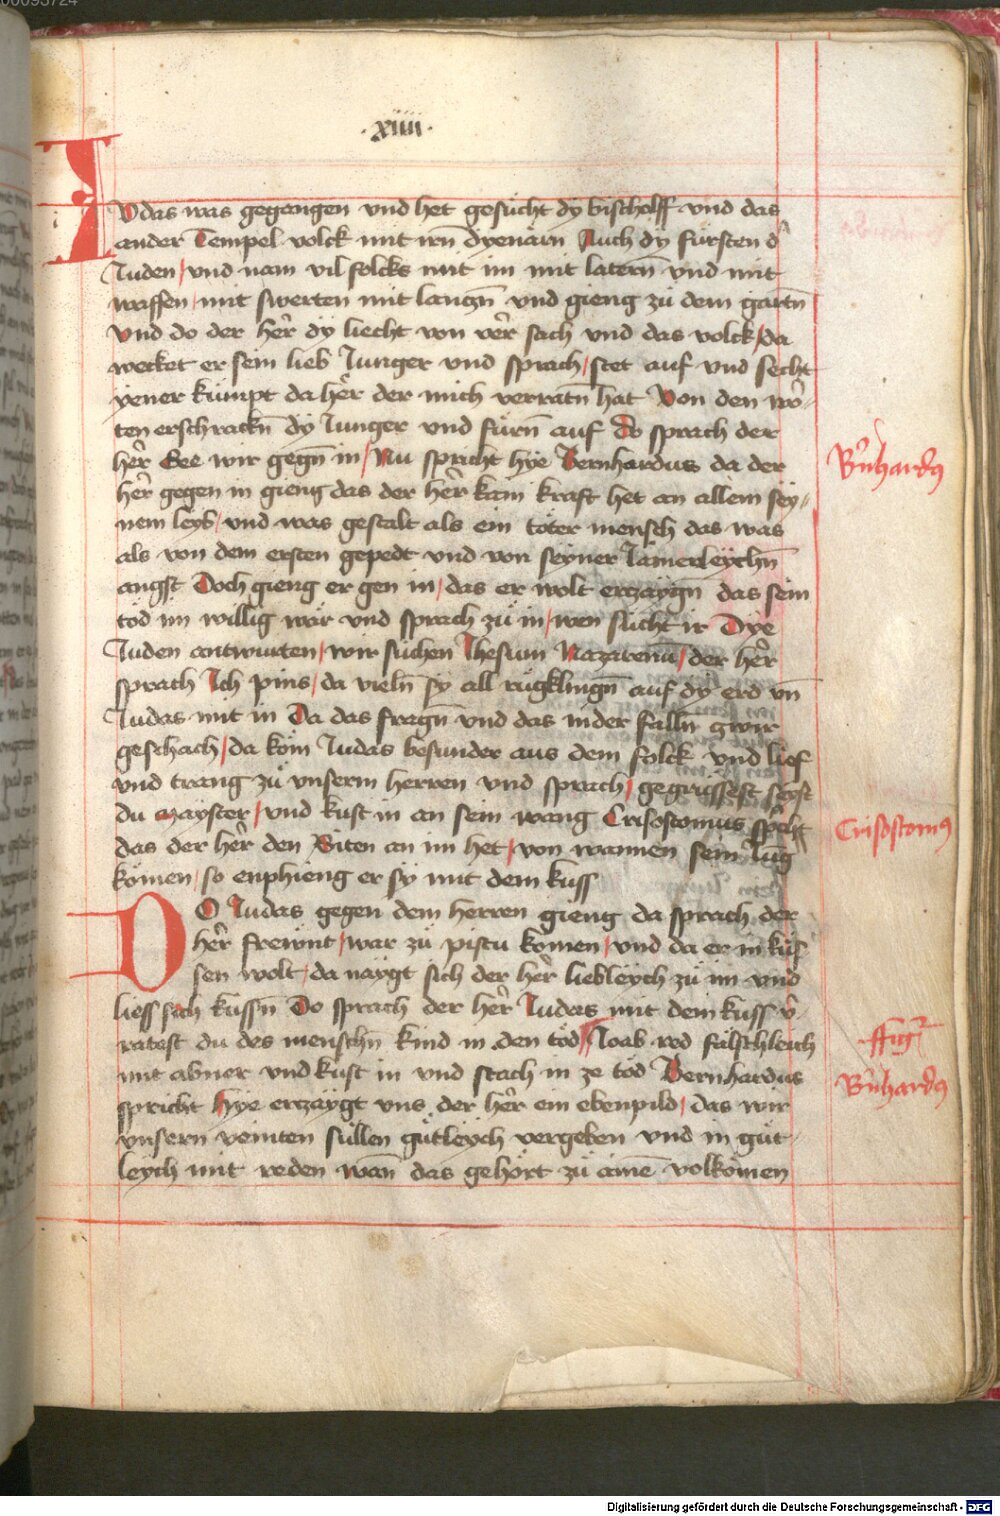 00093724
·xiiii·
IVdas was gegangen vnd het gesucht dy bischolff vnd das
ander Tempel volck mit irn̄ dyenärn Auch dy fürsten d̕
Juden / vnd nam vil folcks mit im mit latern̄ vnd mit
waffen / mit swerten mit lanczn̄ vnd gieng zů dem gartn̄
Vnd do der her̕ dy liecht von ver̕ sach vnd das volck / da
wecket er sein lieb Junger vnd sprach / stet auf vnd secht
yener kümpt da her̕ der mich verratn̄ hat Von den wo̕-
ten erschrackn̄ dy Junger vnd fürn̄ auf Do sprach der
her̕ Gee wir gegn̄ in / Nu spricht hye Bernhardus da der
her̕ gegen in gieng das der her̕ kain kraft het an allem sey-
nem leyb / vnd was gestalt als ein töter mensch das was
als von dem ersten gepedt vnd von seyner Jamerleychn̄
angst Doch gieng er gen in / das er wolt erzaygn̄ das sein
töd im willig wär vnd sprach zů in / wen sücht ir Dye
Juden antwurten / wir süchen Jhesum Nazarenū / der her̕
sprach Ich pins / da vieln̄ sy all rugklingn̄ auf dy erd vn̄
Judas mit in Da das fragn̄ vnd das nider falln̄ gwir
geschach / da kom Judas besunder aus dem folck vnd lief
vnd trang zů vnserm herren vnd sprach / gegrüssest seyst
du mayster / vnd kust in an sein wang Crisostomus spricht
das der her̕ den Siten an im het / von wannen sein Jūg̕
komen / so enphieng er sy mit dem kuss
DO Judas gegen dem herren gieng da sprach der
her̕ frewnt / war zů pistu komen / vnd da er in küs-
sen wolt / da naygt sich der her̕ liebleych zů im vnd
liess sich küssn̄ Do sprach der her̕ Judas mit dem kuss v̕-
ratest du des menschn̄ kind in den töd / Joab red fälschleich
mit abner vnd kust in vnd stach in ze töd Bernhardus
spricht Hye erzaygt vns der her̕ ein ebenpild / das wir
vnsern veinten süllen gütleych vergeben vnd in güt-
leych mit reden wan̄ das gehört zů aine̅ volkomen
B̕nhard9
Crisostom9
ffig̕
B̕nhard9
Digitalisierung gefördert durch die Deutsche Forschungsgemeinschaft - DFG